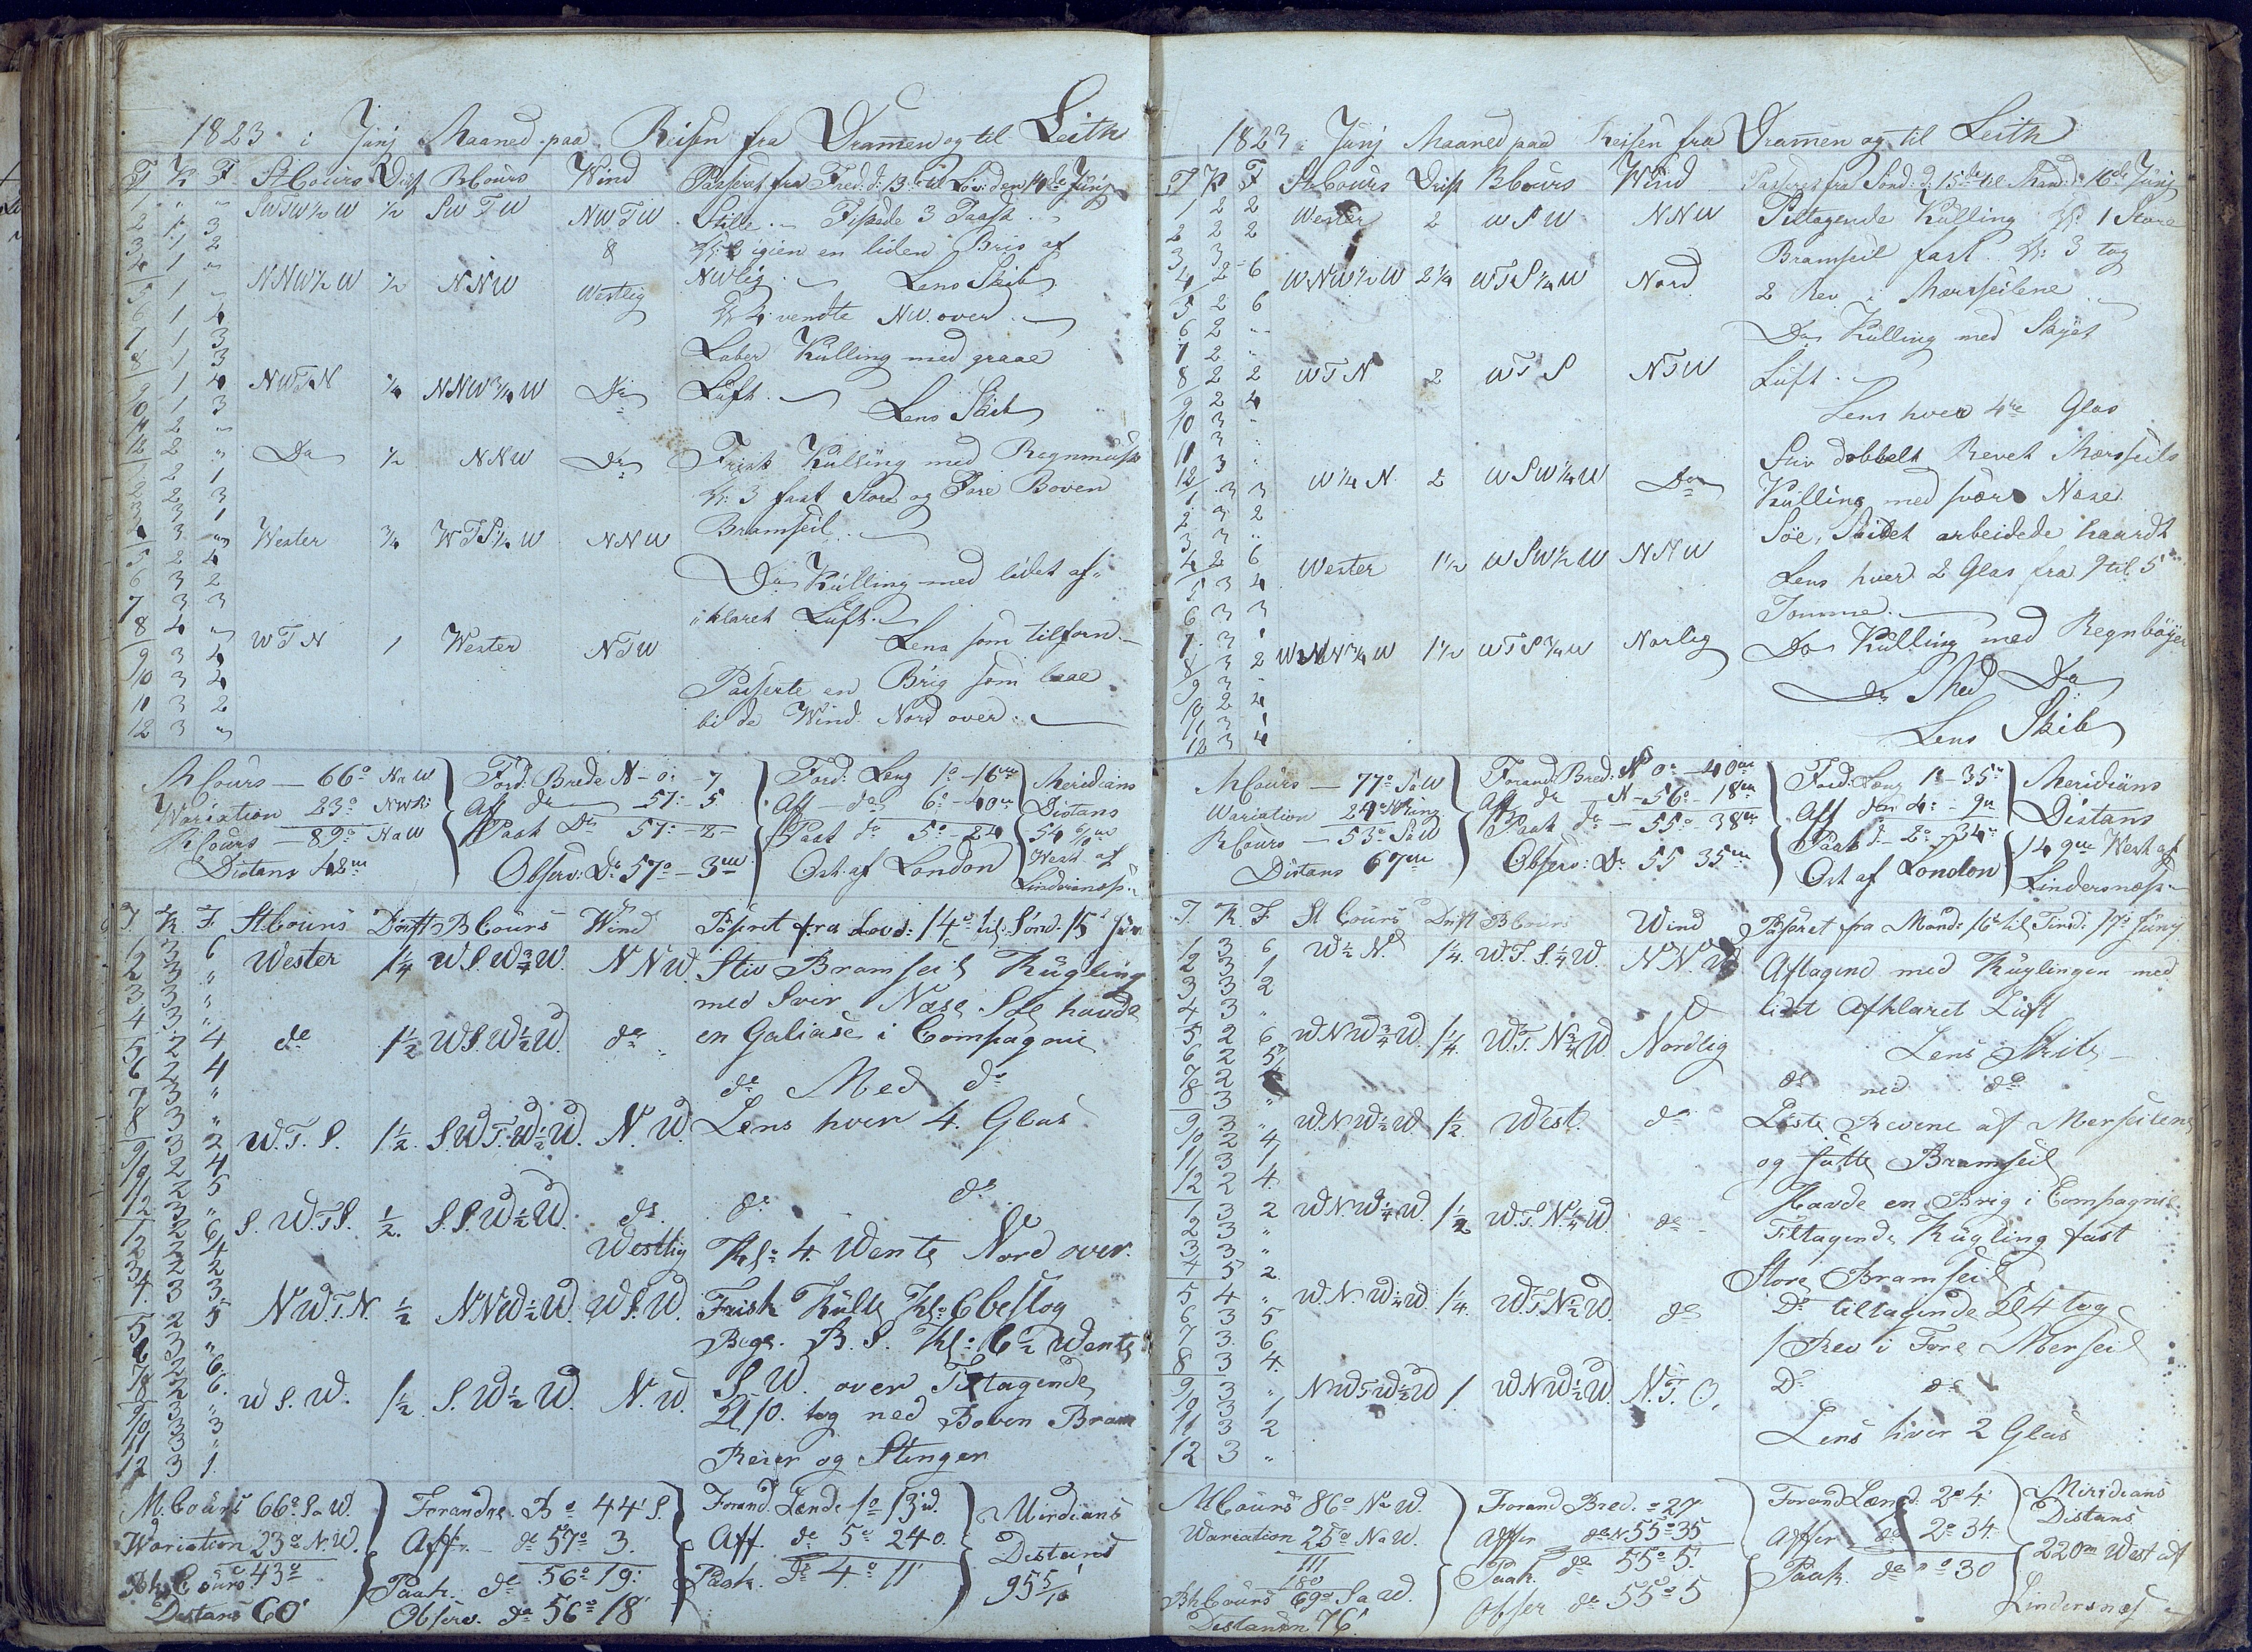 1823 i Junj Maaned paa Reisen fra Dramen og til Leith
T K F StCours Drift BCours Wind Passeret fra Fred: d: 13de til Löv: den 14de Junj
1 " " SWTW½W ½ SWTW NWTW Stille. Fiskede 3 Taask
2 1 3 & Kl: 2 igien en liden Bris af
3 1 2 NWlig. Lens Skib
4 1 " NNW½W ½ NNW Westlig Kl 4 vendte NW. over
5 1 "
6 1 4 Laber Kulling med graae
7 1 3
8 1 3 Luft.
9 1 4 NWTN ¼ NNW¾W Do Lens Skib
10 1 3
11 2 "
12 2 " Do ½ NNW Do Frisk Kulling med Regnmusk
1 2 1 Kl: 3 fast Store og Fore Boven
2 2 3
3 3 1 Bramseil
4 3 " Wester ¾ WTS¼W NNW
5 2 4 Do Kulling med lidet af"
6 3 2
7 3 3 "klaret Luft.
8 4 " WTN 1 Wester NTW Lens som tilforn
9 3 4
10 3 4 Passerte en Brig som laae
11 3 2 bi de Wind Nord over.
12 3 "
MCours — 66° NaW Ford: Brede N - 0: - 7 Ford: Leng 1° - 16m Meridians
Wariation 23° NWR: Aff do 57: - 5 Aff do 6° - 40m Distans
RCours — 89° NaW Paak Do 57: - 2 Paak do 5° - 24 54 6/10m
Distans 42m Observ: Do 57° - 3m Ost af London West af Lindersnæss
T K F StCours Drift BCours Wind Paseret fra Lovd: 14de til Sönd. 15de Jun
1 3 6 Wester 1¼ W.S.W¾W. NNW. Stiv Bramseils Kugling
2 3 " med Svær Næse Söe havde
3 3 "
4 3 " en Galiase i Compagnie
5 2 4 do 1½ WS.W½W. do
6 2 4 do Med do
7 3 "
8 3 " Lens hver 4. Glas
9 3 2 W.T.S. 1½. S.W.T.W½W. N.W.
10 2 4
11 2 5 do do
12 3 "
1 2 6 S.W.T.S. ½. S.S.W½W. do
2 2 4 Westlig Kl: 4. Wente Nord over.
3 2 2
4 3 3 NW.T.N. ½ NNW½W. W.S.W. Frisk Kulte Kl: 6 beslog
5 2 5 Bege. B.S. Kl: 6½ Wente
6 3 "
7 2 6 S.W. over Tiltagende
8 2 6 W.S.W. 1½. S.W½W. N.W. Kl 10. tog ned Boven Bram
9 3 "
10 3 3
11 3 " Reier og Stenger
12 3 1
M.Cours 66° SaW. Forandre. B° 44' S. Forand. Lende 1° 13' W. Mirdians
Wariation 23° N.W. Aff do 57° 3. Aff. do 5° 24 O. Distans
Rh Cours 43° Paak. do 56° 19' Paak. do 4° 11' 95 5/10
Distans 60' Observ. do 56° 18'
1823 i Junj Maaned paa Reisen fra Dramen og til Leith
T K F StCours Drift BCours Wind Passeret fra Sönd: d: 15de til Mand: 16de Junj
1 2 2 Wester 2 WSW NNW Tiltagende Kulling Kl: 1 Store
2 2 2 Bramseil fast. Kl: 3 tog
3 3 "
4 2 6 WNW½W 2¼ WTS¼W Nord 2 Rev i Mærsseilene
5 2 6
6 2 " Do Kulling med Skyet
7 2 " Luft.
8 2 2 WTN 2 WTS NTW
9 2 4 Lens hver 4de Glas
10 3 "
11 3 " Stiv dobbelt Revet Mærsseils
12 3 " W¼N. 2 WSW¼W Do Kulling med svær Næse
1 3 3
2 3 2 Söe, Skibet arbeidede haardt
3 3 "
4 2 6 Wester 1½ WSW½W NNW Lens hver 2 Glas fra 9 til 5
5 3 4 Tommer.
6 3 3
7 3 1 Do Kulling med Regnböyer
8 3 2 WNW¾W 1½ WTS¾W Norlig
9 3 " Do Med Do
10 2 4
11 3 1 Lens Skib
12 3 4
MCours — 77° SaW Forand: Bred: 0° - 40m Ford: Læng 1° - 35m Meridians
Wariation 24° Aff do N - 56° - 18m Aff do 4: - 9m Distans
RCours — 53° SaW Paak do 55° 38m Paak d: 2° - 34m 149m West af
Distans 67m Observ: Do 55 35m Ost af London Lindersnæss
T. K. F. St Cours Drift BCours Wind Paseret fra Mand: 16de til Tirsd: 17de Juny
1 3 6 W½N. 1¼. W.T.S.¼W. N.N.W. Aftagend med Kuglingen med
2 3 1
3 3 2
4 3 " lidt Afklaret Luft
5 2 6 WNW¾W. 1¼. W.T.N¾W. Nordlig Lens Skib
6 2 5
7 2 do med do
8 3 "
9 3 " WNW½W. 1½. West. do Löste Revene af Merseilene
10 2 4
11 3 1 og satte Bramseil
12 2 4.
1 3 2 WNW¼W. 1½ W.T.N¼W. do Havde en Brig i Compagnie
2 3 " Tiltagende Kugling fast
3 3 "
4 5 2 Store Bramseil
5 4 " W.N.W¼W. 1¼. W.T.N½W. do Do tiltagende Kl 4 tog
6 3 5
7 3. 6. 1 Rev i Fore Merseil
8 3 4.
9 3 " NWTW½W 1. WNW½W. N.T.O. Do do
10 3 1
11 3 2 Lens hver 2 Glas
12 3 "
MCours 86° NaW. Forand Bred. ° 27 Forand Læned. 2° 4' Miridians
Wariation 25° NaW. Affer do N 55° 35 Affer do 2° 34 Distans
111 Paak. do 55° 5' Paak do ° 30 220m West af
180
RhCours 69° SaW. Obser do 55° 5 Lindersnes
Distansen 76'.